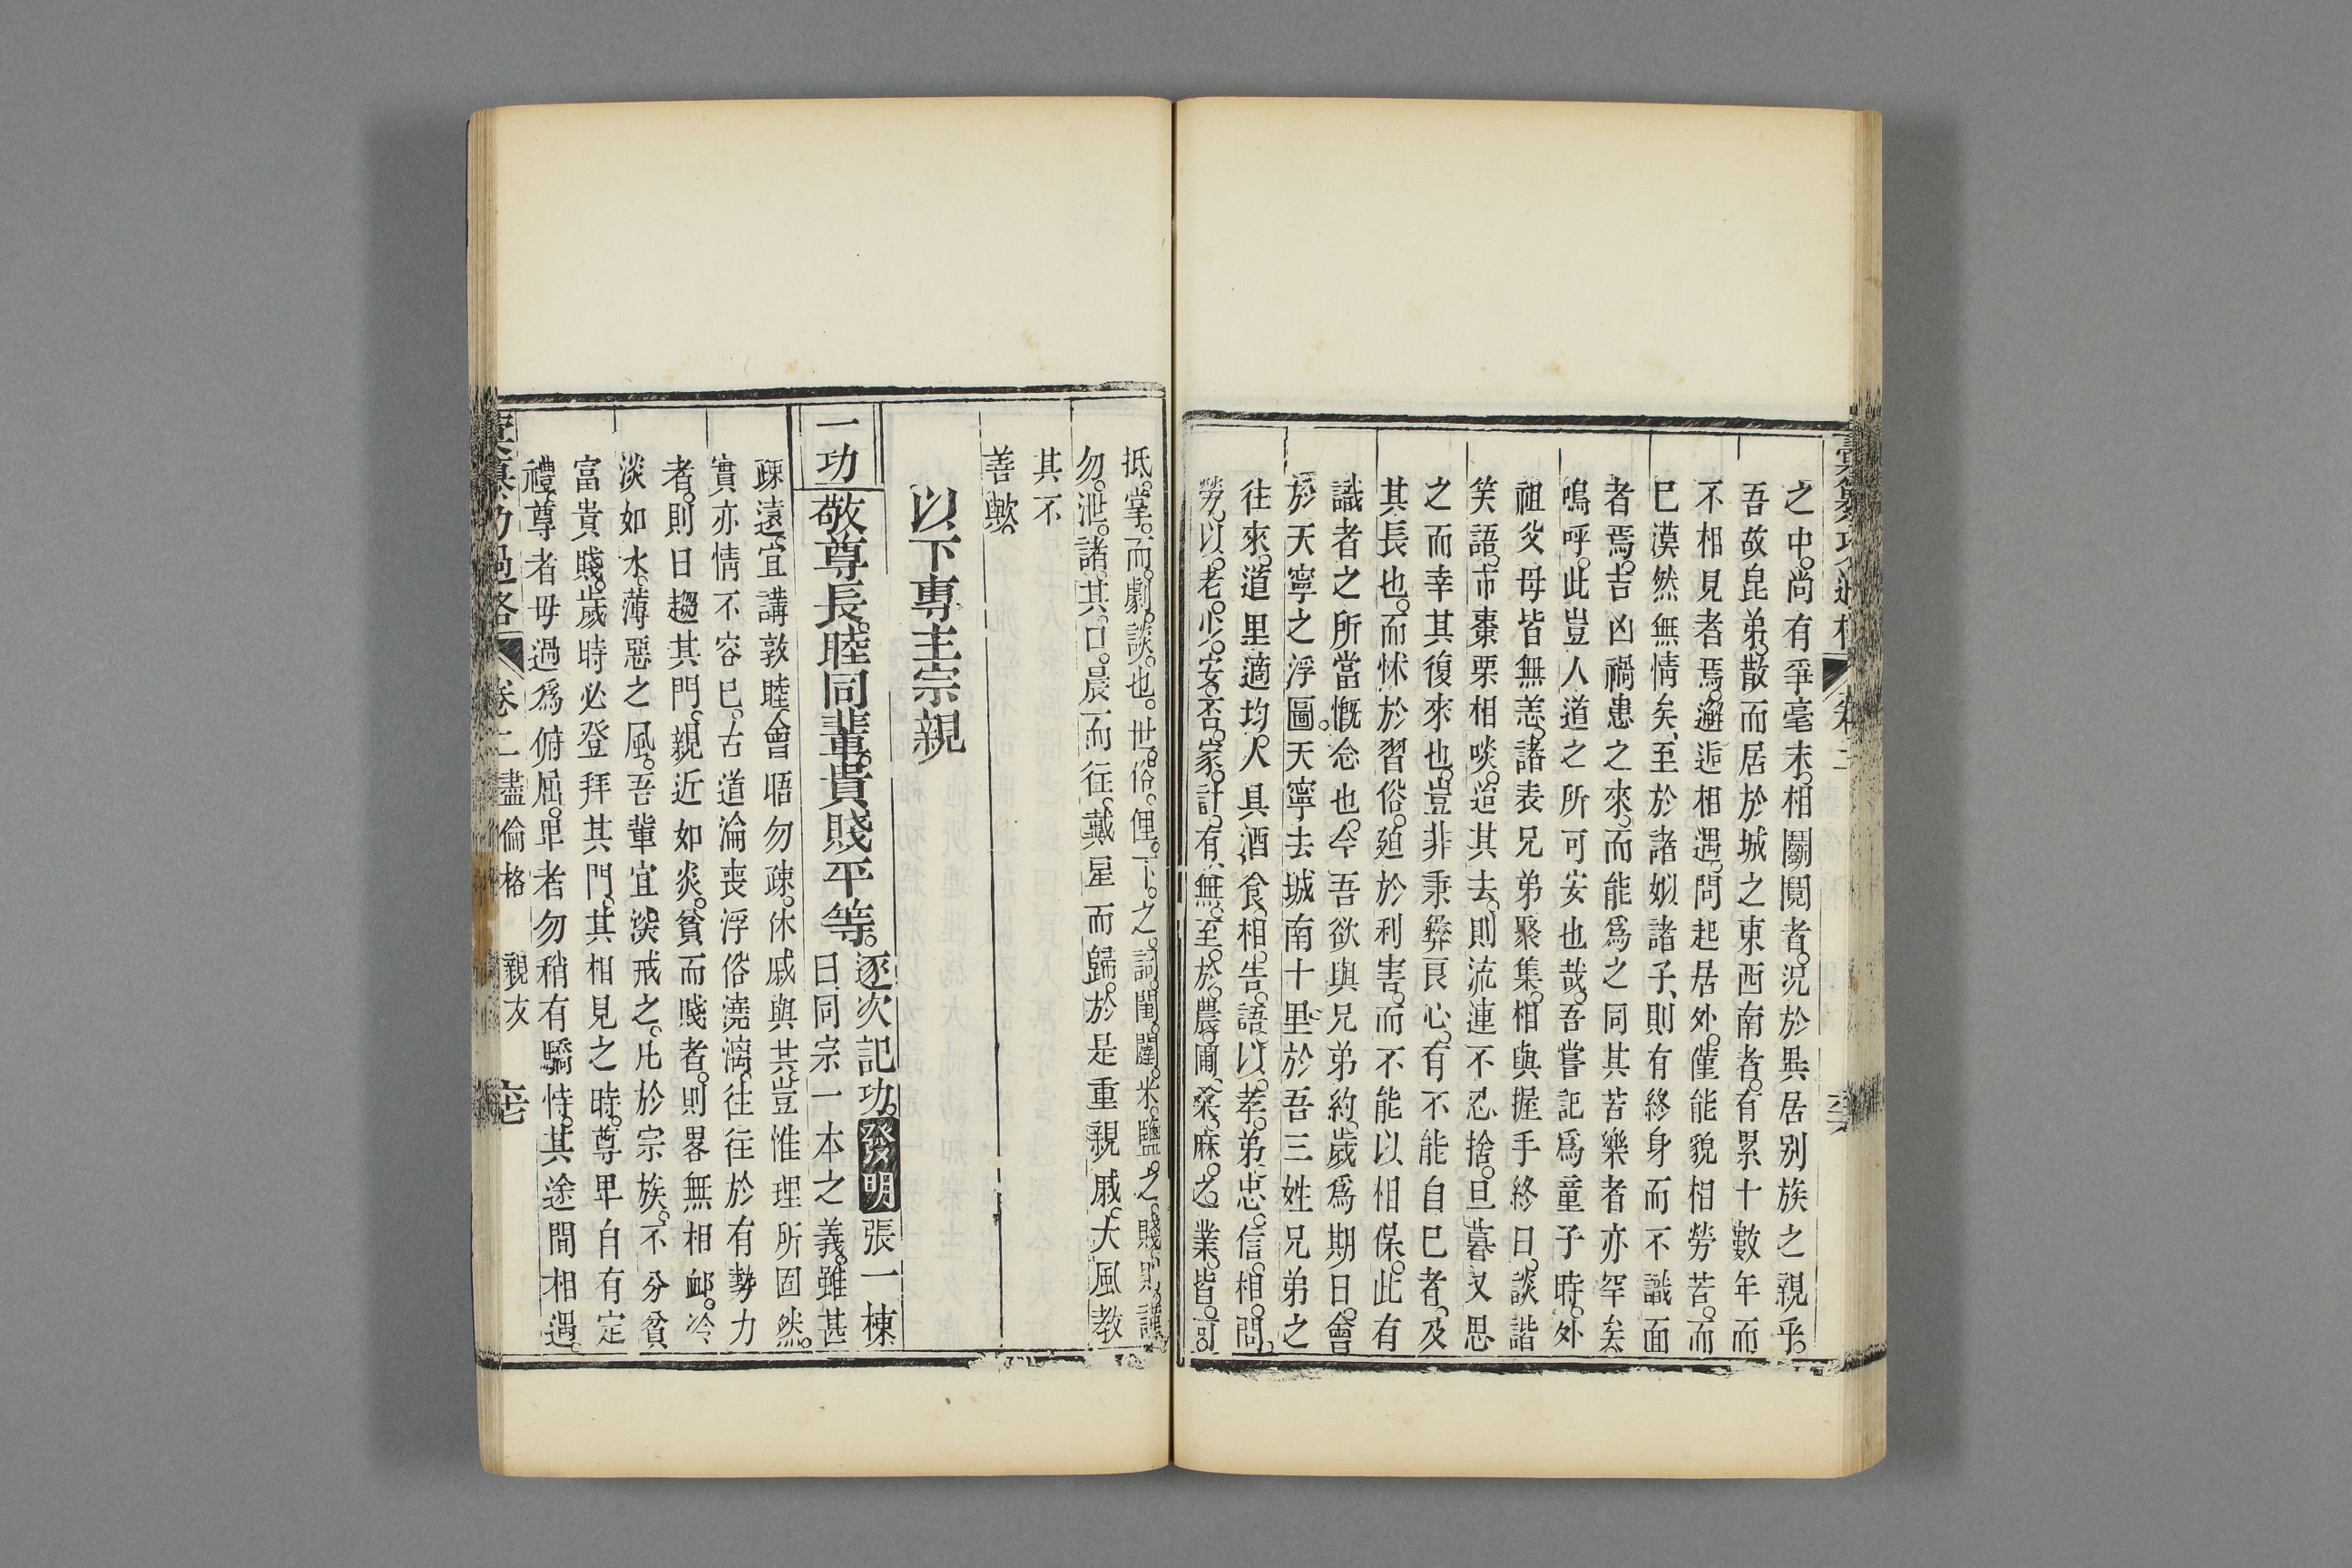 之中。尚有爭毫末。相鬭鬩者。況於異居别族之親乎。
吾故昆弟。散而居於城之東西南者。有累十數年而
不相見者焉。邂逅相遇。問起居外。僅能貌相勞苦。而
已漠然無情矣。至於諸姒諸子。則有終身而不識面
者焉。吉凶禍患之來。而能爲之同其苦樂者亦罕矣。
嗚呼。此豈人道之所可安也哉。吾嘗記爲童子時。外
祖父母皆無恙。諸表兄弟聚集。相與握手終日。談諧
笑語。市棗栗相啖。迨其去。則流連不忍捨。旦暮又思
之而幸其復來也。豈非秉彜良心。有不能自已者。及
其長也。而怵於習俗。廹於利害。而不能以相保。此有
識者之所當慨念也。今吾欲與兄弟約。歲爲期日。會
於天寧之浮圖。天寧去城南十里。於吾三姓兄弟之
往來。道里適均。人具酒食。相告語。以孝。弟。忠。信。相。問。
勞。以。老。少。安。否。家。計。有。無。至。於。農。圃。桑。麻。之。業。皆。可
抵。掌。而。劇。談。也。世。俗。俚。下。之。詞。閨。闥。米。鹽。之。賤。則。謹。
勿。泄。諸。其。口。晨而往。戴星而歸。於是重親戚。大風教
其不
善歟。
以下專主宗親
一功
敬尊長。睦同輩。貴賤平等。逐次記功。發明張一棟
曰。同宗一本之義。雖甚
疎遠。宜講敦睦。會晤勿疎。休戚與共。豈惟理所固然。
實亦情不容已。古道淪喪。浮俗澆漓。往往於有勢力
者。則日趨其門。親近如炎。貧而賤者。則畧無相卹。冷
淡如水。薄惡之風。吾輩宜深戒之。凡於宗族。不分貧
富貴賤。歲時必登拜其門。其相見之時。尊卑自有定
禮。尊者毋過爲俯屈。卑者勿稍有驕恃。其途間相遇。
彙纂功過格 卷二 盡倫格 親友